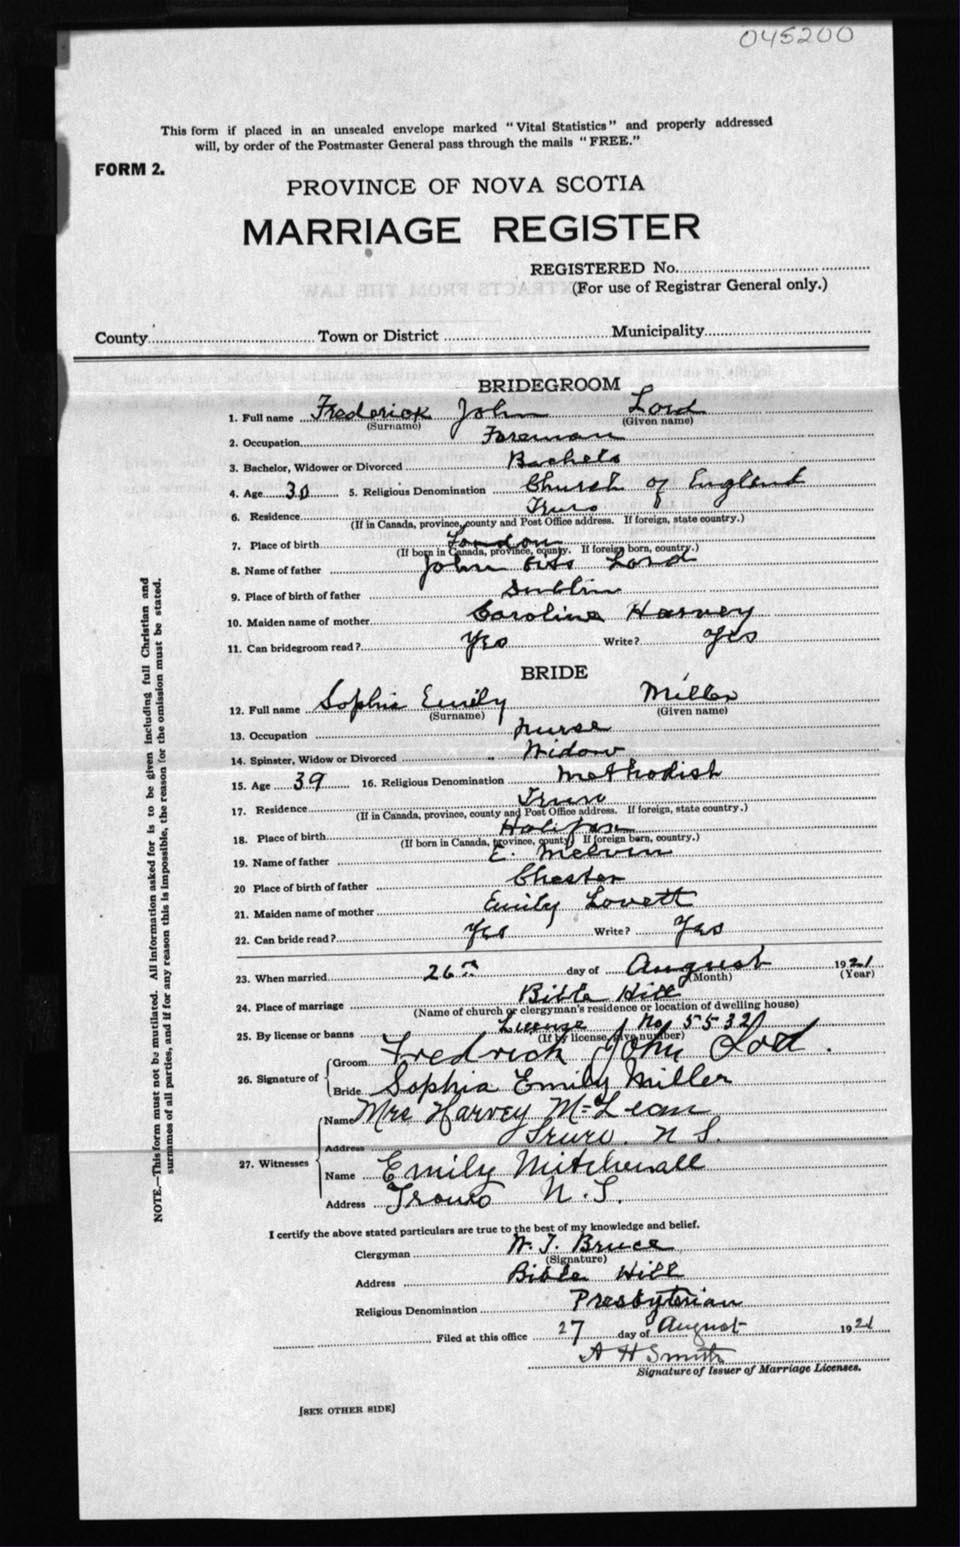 045200
This form if placed in an unsealed envelope marked "Vital Statistics" and properly addressed
will, by order of the Postmaster General pass through the mails "FREE."
FORM 2.
PROVINCE OF NOVA SCOTIA
MARRIAGE REGISTER
REGISTERED No.
(For use of Registrar General only.)
County Town or District Municipality
BRIDEGROOM
1. Full name Frederick John Lord
(Surname) (Given name)
2. Occupation Foreman
3. Bachelor, Widower or Divorced Bachelo
4. Age 30 5. Religious Denomination Church of England
6. Residence Truro
(If in Canada, province, county and Post Office address. If foreign, state country.)
7. Place of birth London
(If born in Canada, province, county. If foreign born, country.)
8. Name of father John Lord
9. Place of birth of father Dublin
10. Maiden name of mother Caroline Harvey
11. Can bridegroom read? Yes Write? Yes
BRIDE
12. Full name Sophia Emily Miller
(Surname) (Given name)
13. Occupation Nurse
14. Spinster, Widow or Divorced Widow
15. Age 39 16. Religious Denomination Methodist
17. Residence Truro
(If in Canada, province, county and Post Office address. If foreign, state country.)
18. Place of birth Halifax
(If born in Canada, province, county. If foreign born, country.)
19. Name of father E. Melvin
20 Place of birth of father Chester
21. Maiden name of mother Emily Lovett
22. Can bride read? Yes Write? Yes
23. When married 26th day of August 1921
(Month) (Year)
24. Place of marriage Bible Hill
(Name of church or clergyman's residence or location of dwelling house)
25. By license or banns License No 5532
(If by license, give number)
26. Signature of Groom Fredrick John Lord.
Bride Sophia Emily Miller
27. Witnesses Name Mrs Harvey McLean
Address Truro. N S.
Name Emily
Address Truro N.S.
I certify the above stated particulars are true to the best of my knowledge and belief.
Clergyman W. T. Bruce
(Signature)
Address Bible Hill
Religious Denomination Presbyterian
Filed at this office 27 day of August 1921
A H Smith
Signature of Issuer of Marriage Licenses.
[SEE OTHER SIDE]
NOTE.—This form must not be mutilated. All information asked for is to be given including full Christian and
surnames of all parties, and if for any reason this is impossible, the reason for the omission must be stated.